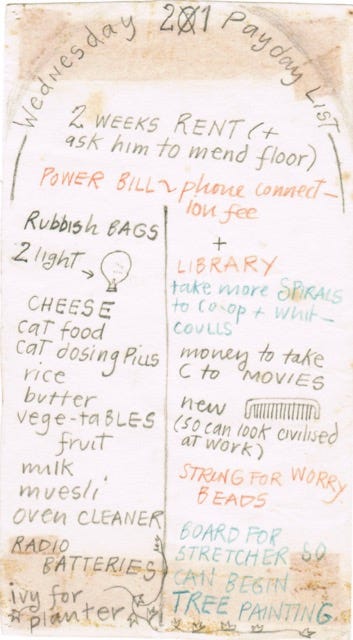 Wednesday 201 Payday List
2 WEEKS RENT (+
ask him to mend floor)
POWER BILL ~ phone connect–
ion fee
Rubbish BAGS
2 light →
CHEESE
cat food
cat dosing Pills
rice
butter
vege-taBLES
fruit
milk
muesli
oven CLEANER
RADIO
BATTERIES
ivy for
planter
+
LIBRARY
take more SPIRALS
to co-op + whit–
coulls
money to take
C to MOVIES
new
(so can look civilised
at work)
STRING FOR WORRY
BEADS
BOARD FOR
STRETCHER SO
CAN BEGIN
TREE PAINTING